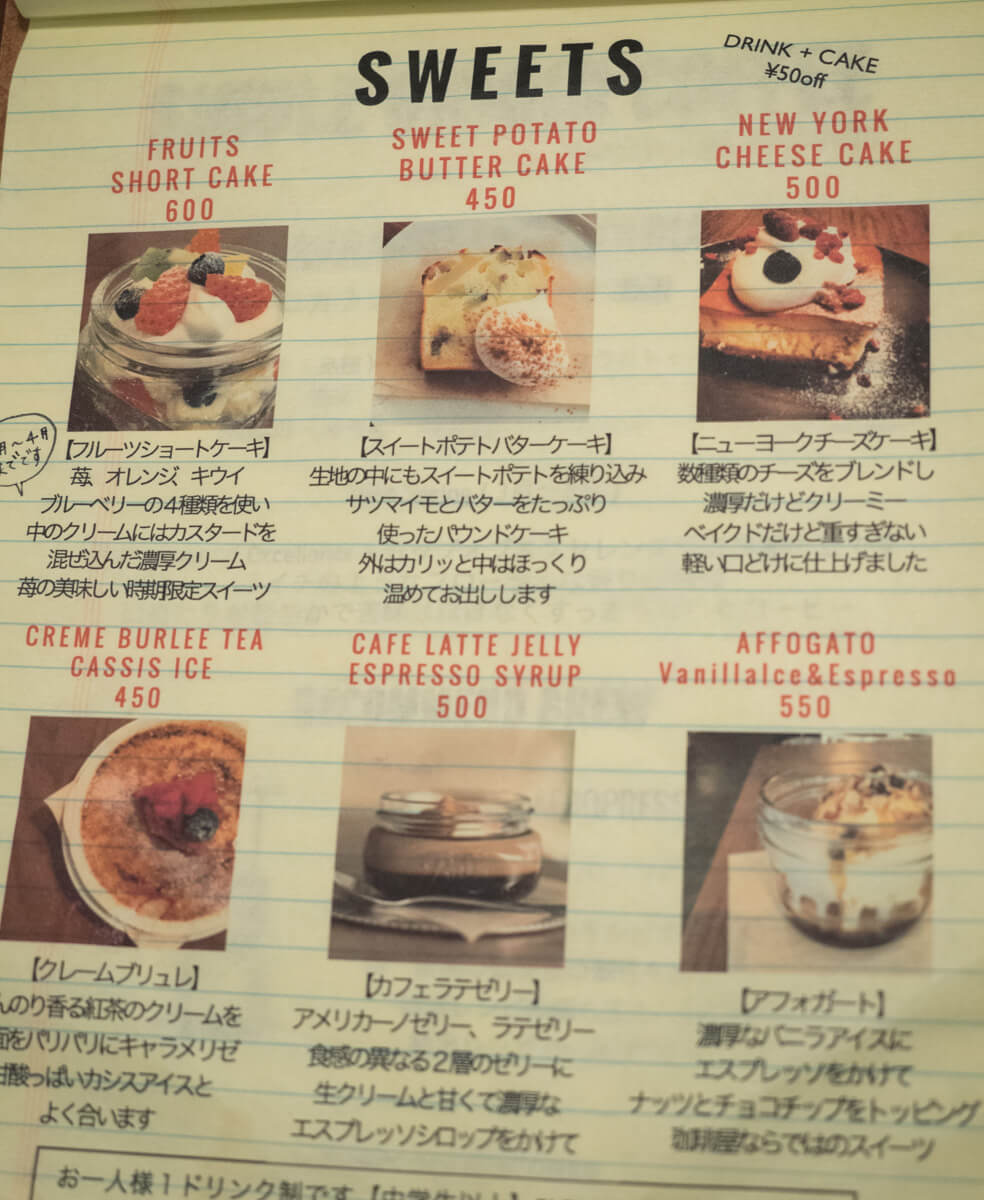 SWEETS
DRINK + CAKE
¥50off
FRUITS
SHORT CAKE
600
SWEET POTATO
BUTTER CAKE
450
NEW YORK
CHEESE CAKE
500
～4月
でです
【フルーツショートケーキ】
苺、オレンジ、キウイ
ブルーベリーの4種類を使い
中のクリームにはカスタードを
混ぜ込んだ濃厚クリーム
苺の美味しい時期限定スイーツ
【スイートポテトバターケーキ】
生地の中にもスイートポテトを練り込み
サツマイモとバターをたっぷり
使ったパウンドケーキ
外はカリッと中はほっくり
温めてお出しします
【ニューヨークチーズケーキ】
数種類のチーズをブレンドし
濃厚だけどクリーミー
ベイクドだけど重すぎない
軽い口どけに仕上げました
CREME BURLEE TEA
CASSIS ICE
450
CAFE LATTE JELLY
ESPRESSO SYRUP
500
AFFOGATO
VanillaIce&Espresso
550
【クレームブリュレ】
んのり香る紅茶のクリームを
面をパリパリにキャラメリゼ
甘酸っぱいカシスアイスと
よく合います
【カフェラテゼリー】
アメリカーノゼリー、ラテゼリー
食感の異なる2層のゼリーに
生クリームと甘くて濃厚な
エスプレッソシロップをかけて
【アフォガート】
濃厚なバニラアイスに
エスプレッソをかけて
ナッツとチョコチップをトッピング
珈琲屋ならではのスイーツ
お一人様1ドリンク制です【中学生以上】